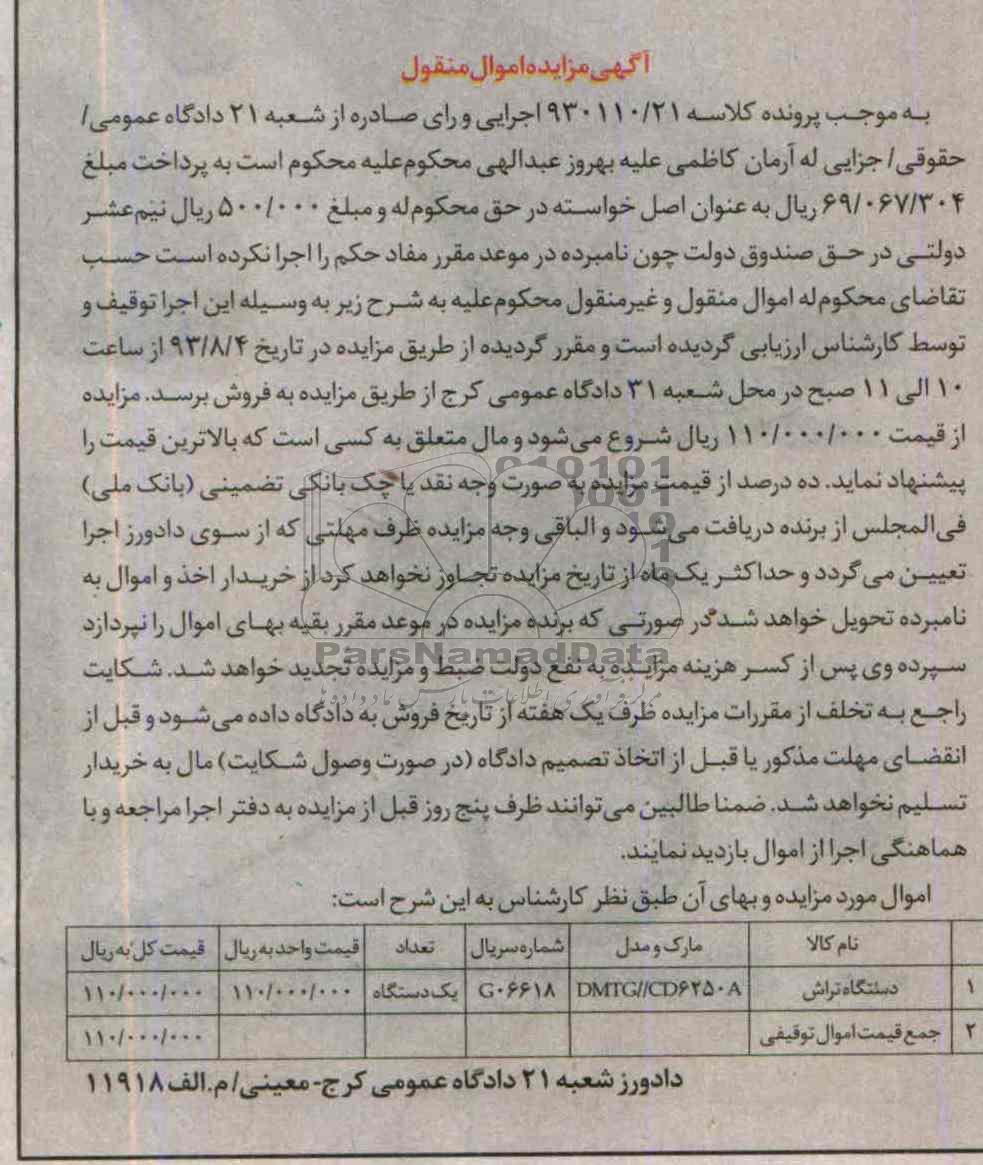 آگهی مزایده اموال منقول
به موجب پرونده کلاسه ۹۳۰۱۱۰/۲۱ اجرایی و رای صادره از شعبه ۲۱ دادگاه عمومی/
حقوقی/ جزایی له آرمان کاظمی علیه بهروز عبدالهی محکوم‌علیه محکوم است به پرداخت مبلغ
۶۹/۰۶۷/۳۰۴ ریال به عنوان اصل خواسته در حق محکوم‌له و مبلغ ۵۰۰/۰۰۰ ریال نیم‌عشر
دولتی در حق صندوق دولت چون نامبرده در موعد مقرر مفاد حکم را اجرا نکرده است حسب
تقاضای محکوم‌له اموال منقول و غیرمنقول محکوم‌علیه به شرح زیر به وسیله این اجرا توقیف و
توسط کارشناس ارزیابی گردیده است و مقرر گردیده از طریق مزایده در تاریخ ۹۳/۸/۴ از ساعت
۱۰ الی ۱۱ صبح در محل شعبه ۳۱ دادگاه عمومی کرج از طریق مزایده به فروش برسد. مزایده
از قیمت ۱۱۰/۰۰۰/۰۰۰ ریال شروع می‌شود و مال متعلق به کسی است که بالاترین قیمت را
پیشنهاد نماید. ده درصد از قیمت مزایده به صورت وجه نقد یا چک بانکی تضمینی (بانک ملی)
فی‌المجلس از برنده دریافت می‌شود و الباقی وجه مزایده ظرف مهلتی که از سوی دادورز اجرا
تعیین می‌گردد و حداکثر یک ماه از تاریخ مزایده تجاوز نخواهد کرد از خریدار اخذ و اموال به
نامبرده تحویل خواهد شد در صورتی که برنده مزایده در موعد مقرر بقیه بهای اموال را نپردازد
سپرده وی پس از کسر هزینه مزایده به نفع دولت ضبط و مزایده تجدید خواهد شد. شکایت
راجع به تخلف از مقررات مزایده ظرف یک هفته از تاریخ فروش به دادگاه داده می‌شود و قبل از
انقضای مهلت مذکور یا قبل از اتخاذ تصمیم دادگاه (در صورت وصول شکایت) مال به خریدار
تسلیم نخواهد شد. ضمنا طالبین می‌توانند ظرف پنج روز قبل از مزایده به دفتر اجرا مراجعه و با
هماهنگی اجرا از اموال بازدید نمایند.
اموال مورد مزایده و بهای آن طبق نظر کارشناس به این شرح است:
نام کالا مارک و مدل شماره سریال تعداد قیمت واحد به ریال قیمت کل به ریال
۱ دستگاه تراش DMTG//CD۶۲۵۰A G۰۶۶۱۸ یک دستگاه ۱۱۰/۰۰۰/۰۰۰ ۱۱۰/۰۰۰/۰۰۰
۲ جمع قیمت اموال توقیفی ۱۱۰/۰۰۰/۰۰۰
دادورز شعبه ۲۱ دادگاه عمومی کرج- معینی/ م.الف ۱۱۹۱۸
ParsNamadData